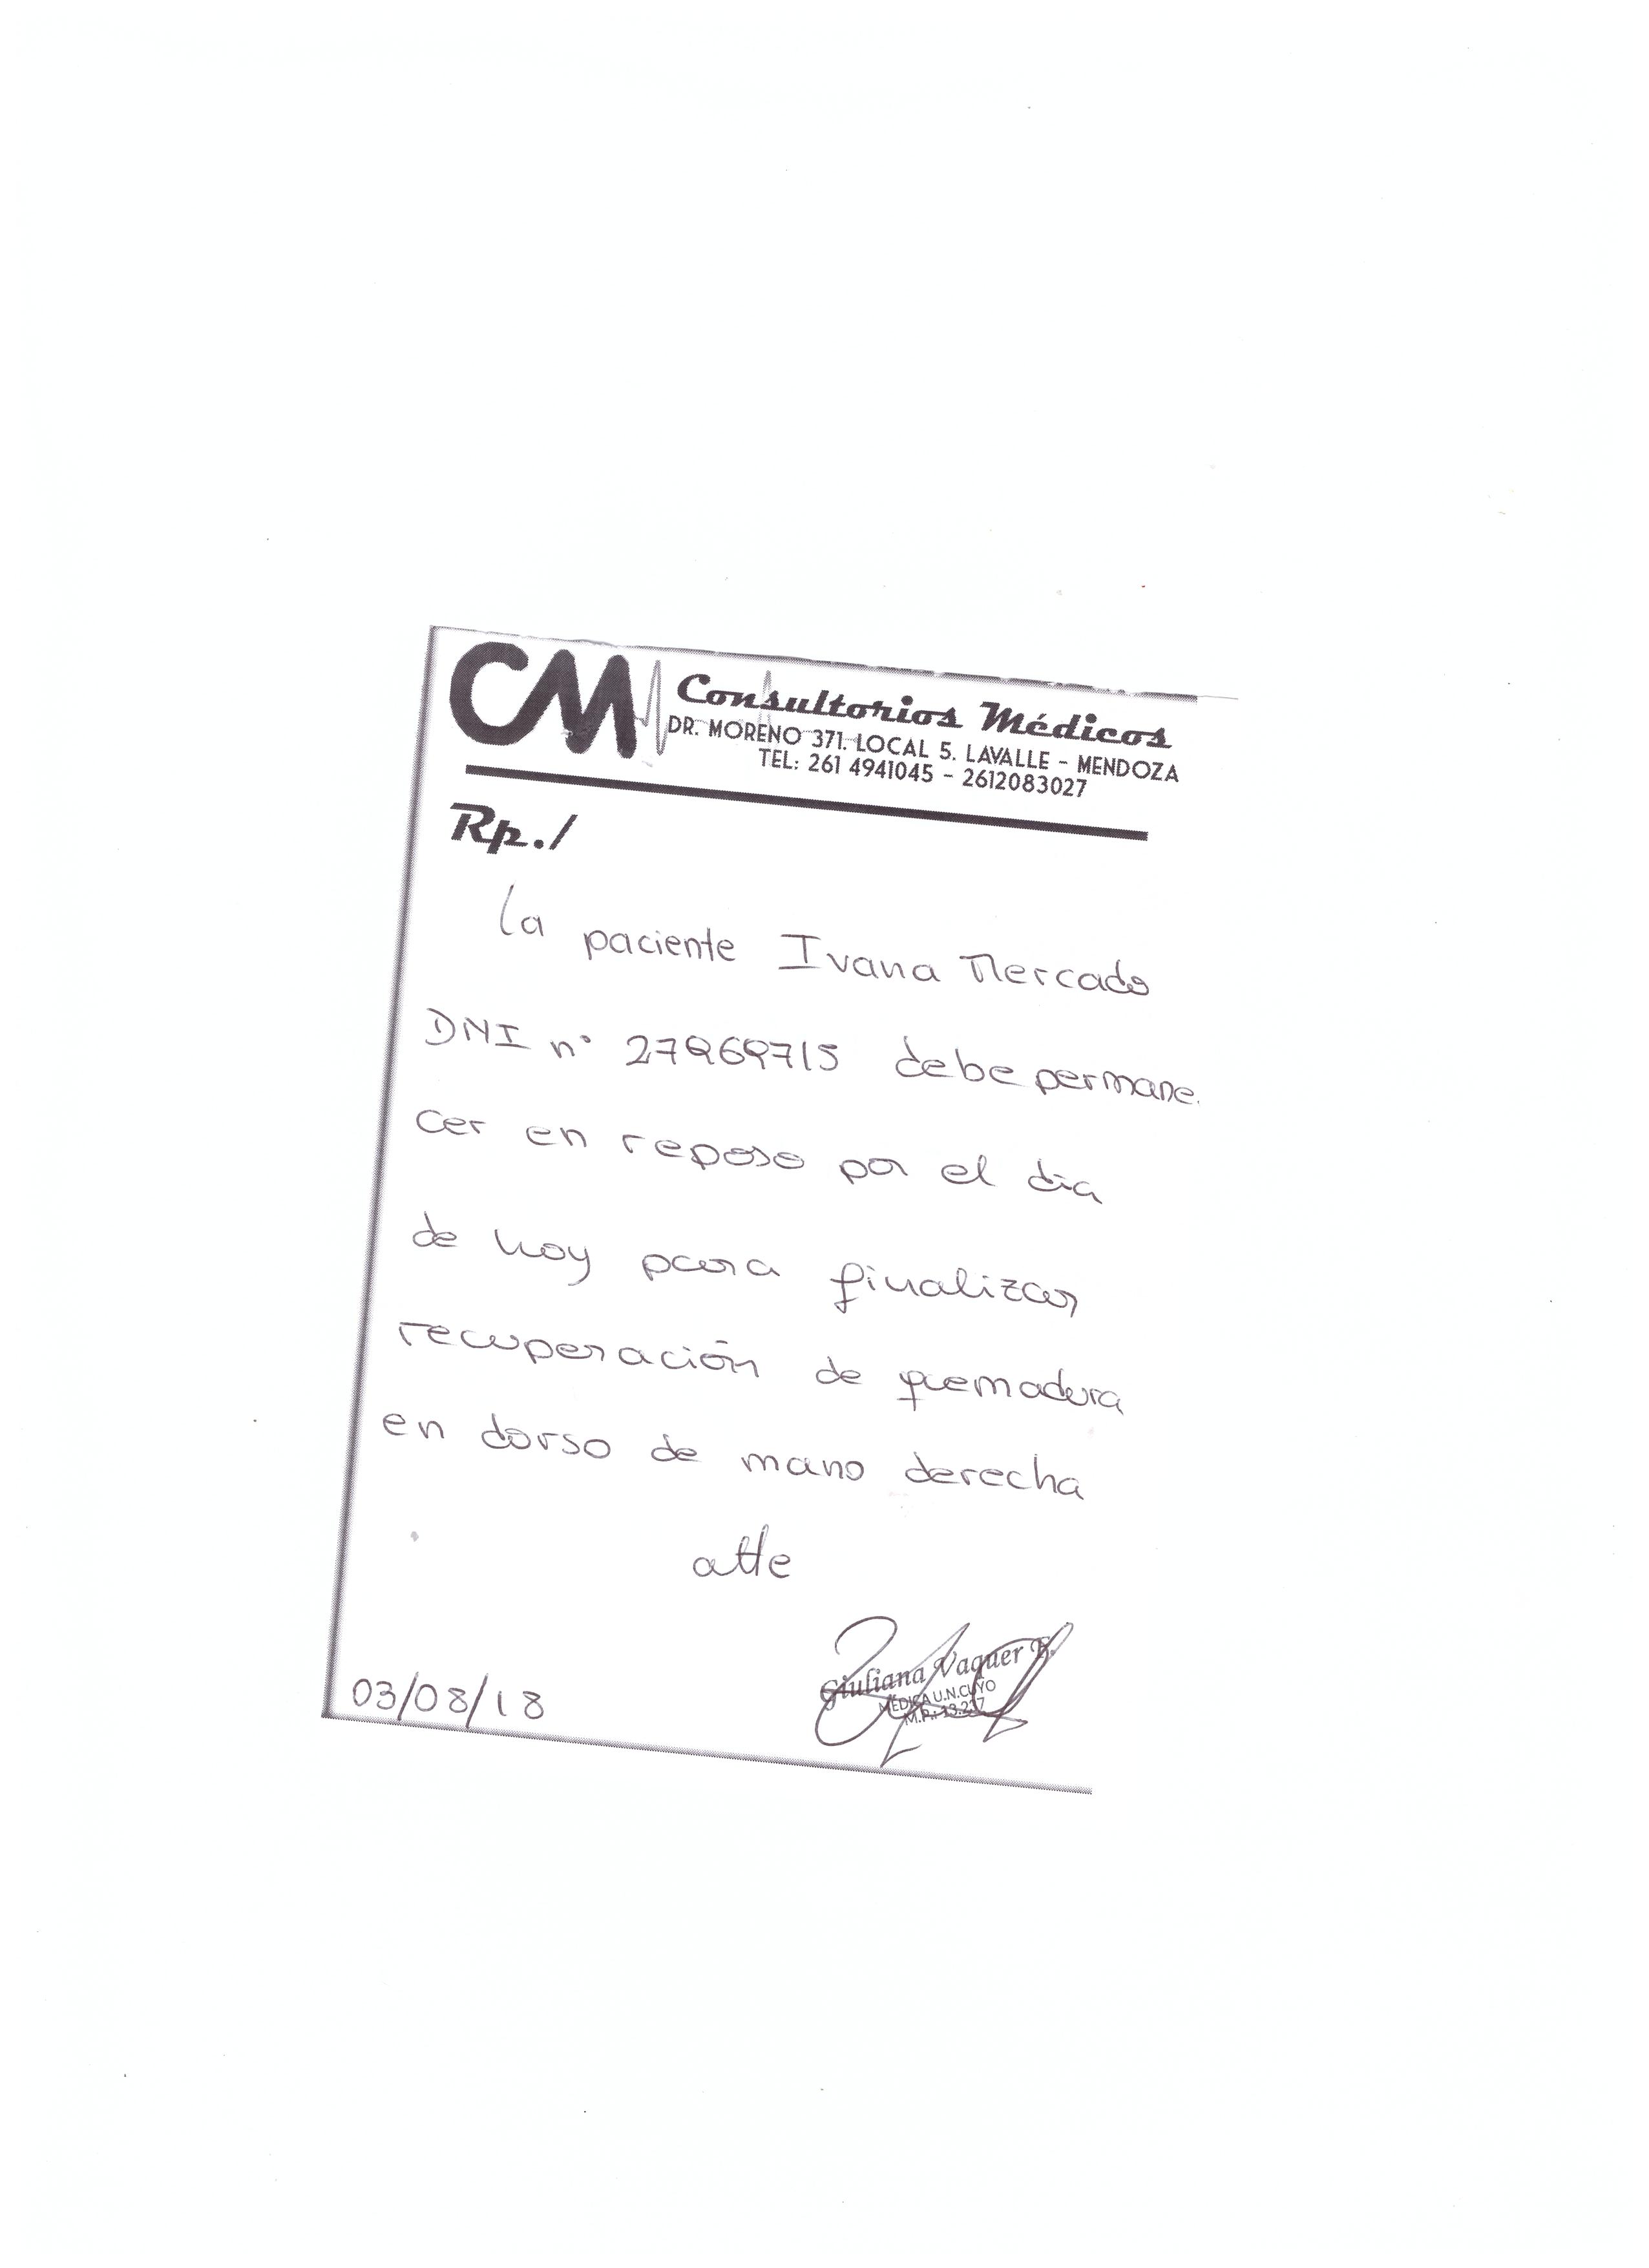 CM Consultorios Médicos
DR. MORENO 371. LOCAL 5. LAVALLE - MENDOZA
TEL: 261 4941045 - 2612083027
Rp./
La paciente Ivana Mercado
DNI n° 27969715 debe permane.
cer en reposo por el dia
de hoy para finalizar
recuperación de quemadura
en dorso de mano derecha
atte
Giuliana Vaquer
MÉDICA U.N.CUYO
M.P.:
03/08/18